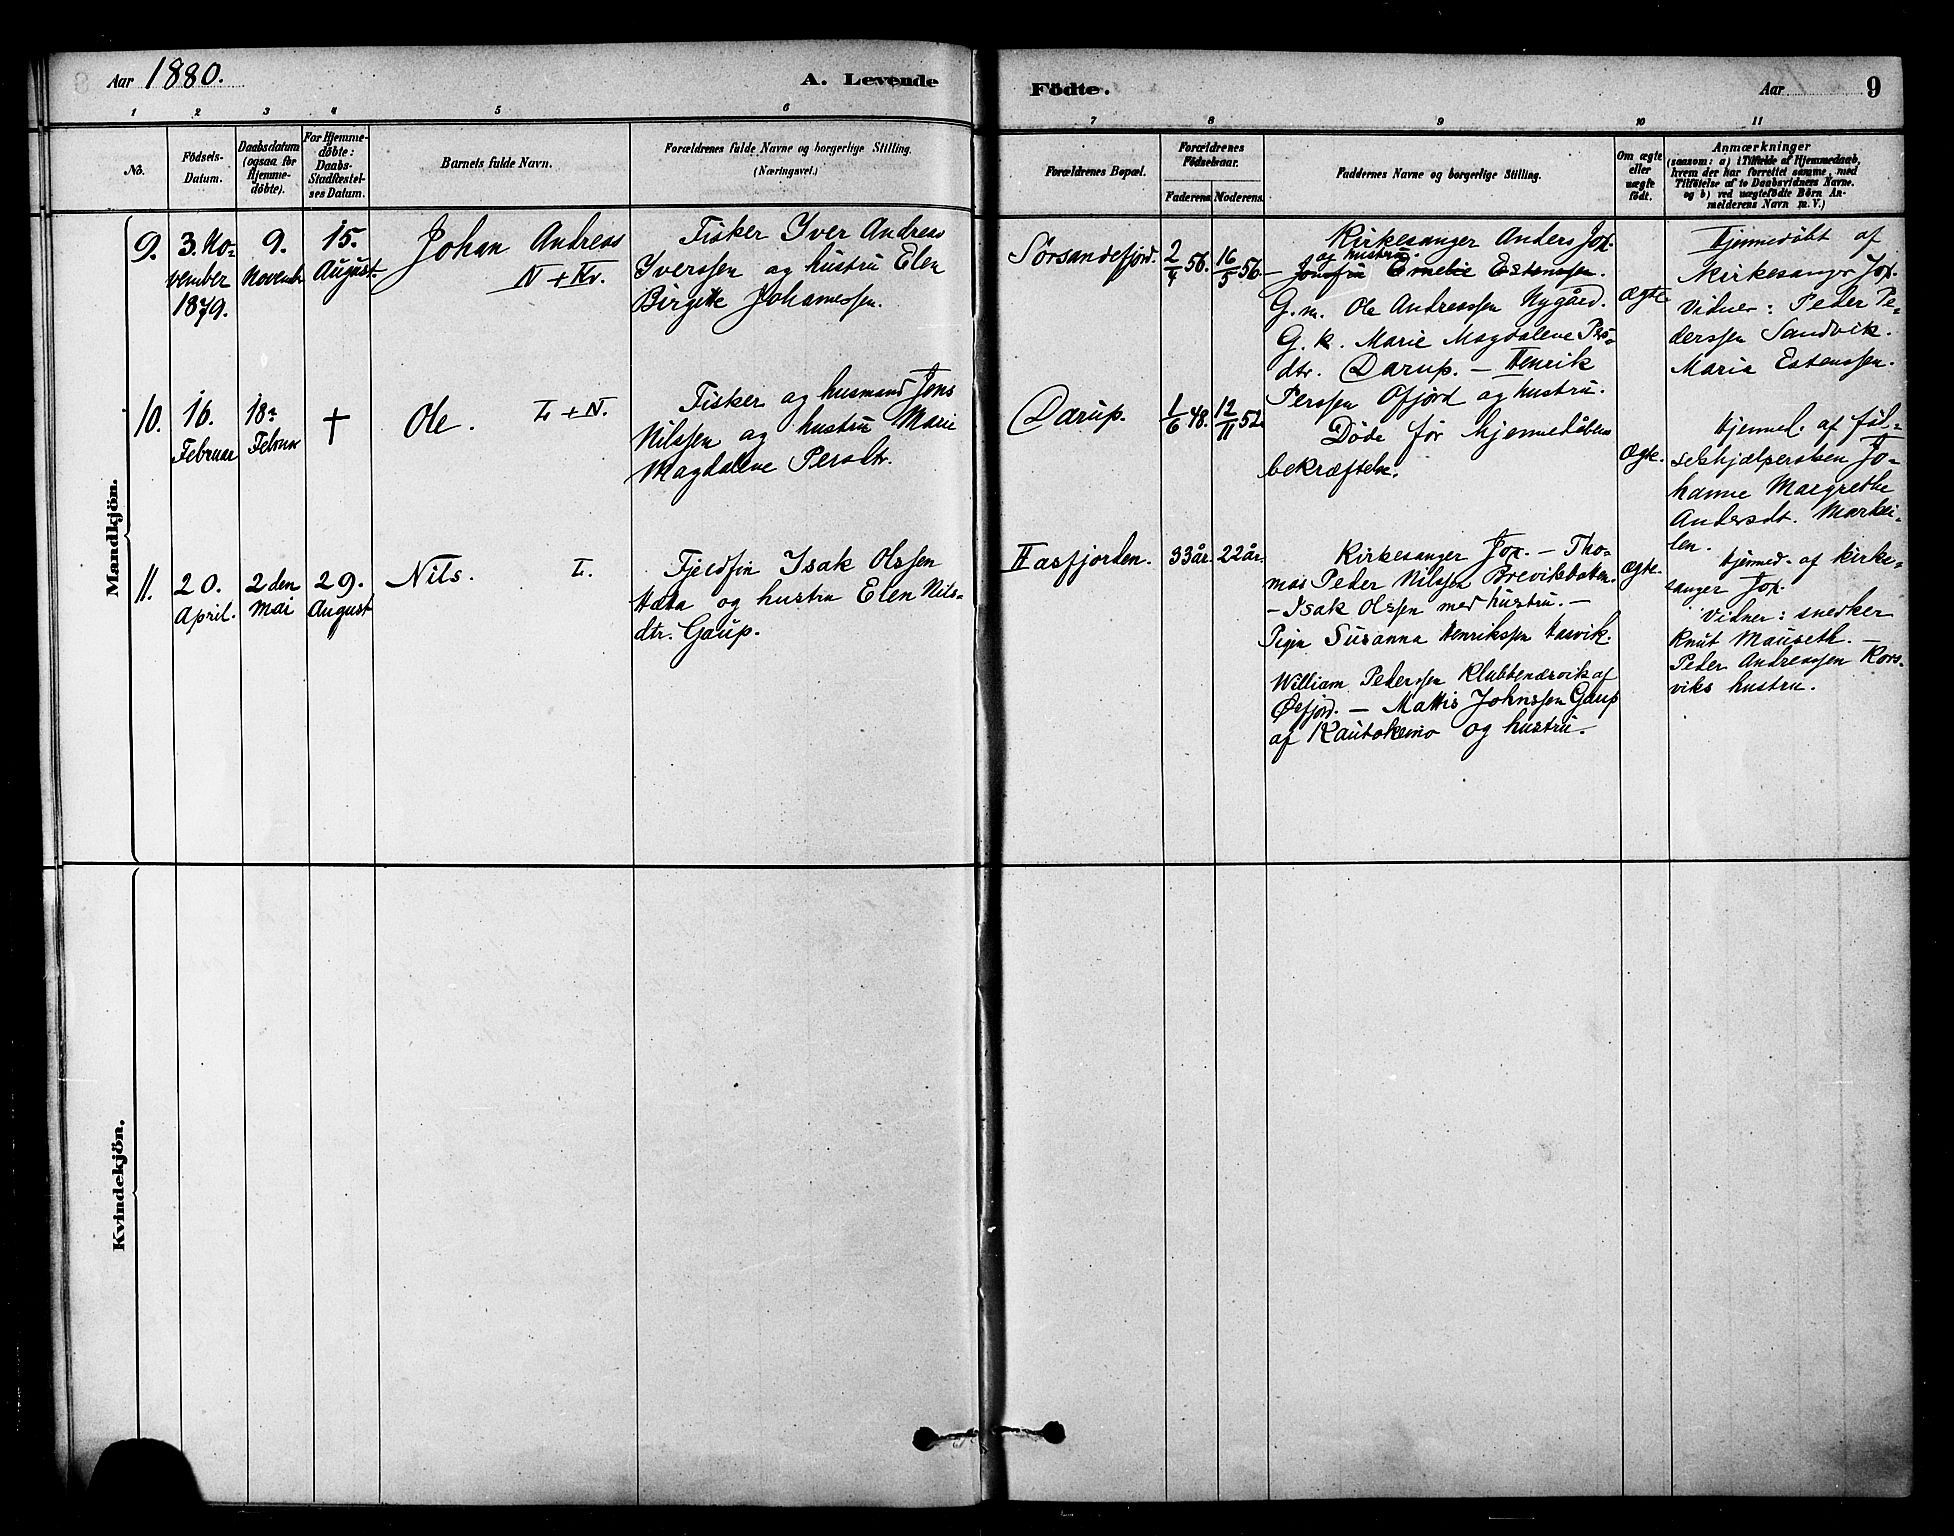 Aar 1880.
A. Levende
Födte.
Aar
9
1 2 3 4 5 6 7 8 9 10 11
No.
Födsels-
Datum.
Daabsdatum
(ogsaa for
Hjemme-
døbte).
For Hjemme-
døbte:
Daabs-
Stadfæstel-
ses Datum.
Barnets fulde Navn.
Forældrenes fulde Navne og borgerlige Stilling.
(Næringsvei.)
Forældrenes Bopæl.
Forældrenes
Födselsaar.
Faderens. Moderens.
Faddernes Navne og borgerlige Stilling.
Om ægte
eller
uægte
født.
Anmærkninger
(saasom: a) i Tilfælde af Hjemmedaab,
hvem der har forrettet samme, med
Tilföielse af to Daabsvidners Navne.
og b) ved uægtefödte Börn An-
melderens Navn m. V.)
Mandkjön.
9.
3. No-
vember
1879.
9.
November
15.
August
Johan Andreas
N + Kv.
Fisker Yver Andreas
Yverssen og hustru Elen
Birgitte Johannessen.
Sørsandefjord.
2/4 56.
16/5 56.
Kirkesanger Anders Jox.
og hustru
— Josefin Emelie Estenssen.
G.m. Ole Andreassen Nygård.
G.k. Marie Magdalene Pers-
dtr. Darup. — Henrik
Perssen Ofjord og hustru.
Ægte
Hjemmedøbt af
kirkesanger Jox.
Vidner: Peder Pe-
derssen Sandvik.
Maria Estenssen.
10.
16.
Februar
18n
Februar
†
Ole. L + N.
Fisker og husmand Jons
Nilssen og hustru Marie
Magdalene Persdtr.
Darup.
1/6 48.
12/11 52.
Døde før hjemmedåbens
bekræftelse.
Ægte.
Hjemmed. af fød-
selshjælpersken Jo-
hanne Margrethe
Andersdt.
11.
20.
April.
2den
Mai
29.
August
Nils. L.
Fjeldfin Isak Olssen
Hæta og hustru Elen Nils-
dtr. Gaup.
Hasfjorden.
33år.
22år.
Kirkesanger Jox. — Tho-
mas Peder Nilssen Breviksbotten.
— Isak Olssen med hustru. —
Pigen Susanna Henrikssen Hasvik.
William Pederssen Klubbenæsvik af
Øxfjord. — Mattis Johnssen Gaup
af Kautokeino og hustru.
Ægte.
Hjemmed. af kirke-
sanger Jox.
Vidner: snedker
Knut Mauseth. —
Peder Andreassen Kors-
viks hustru.
Kvindekjön.